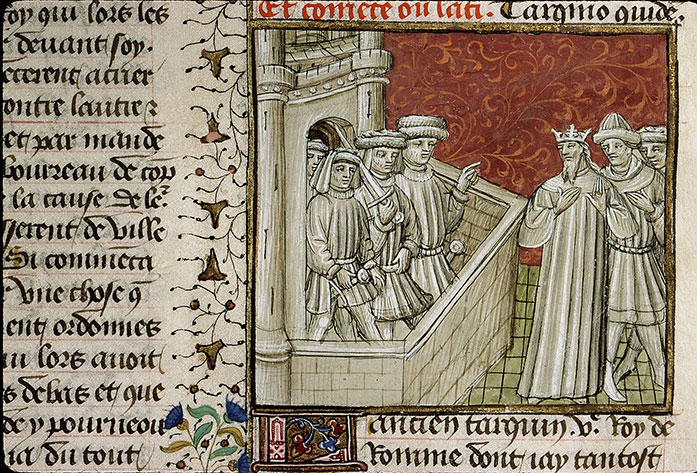 soy qui lors les
e devant soy.
ecerent acuer
ontre lautie
et par mande
boureau de cop
r la cause de le
sserent de ville
Si commeca
r vne chose q̄
ent ordonnees
ui lors auoit
s debas et que
de y pourueou
ia du tout
Et comēce ou lati. Tarqnio quidē.
ancien tarquin .v.ͤ Roy de
Romme dont iay tantost